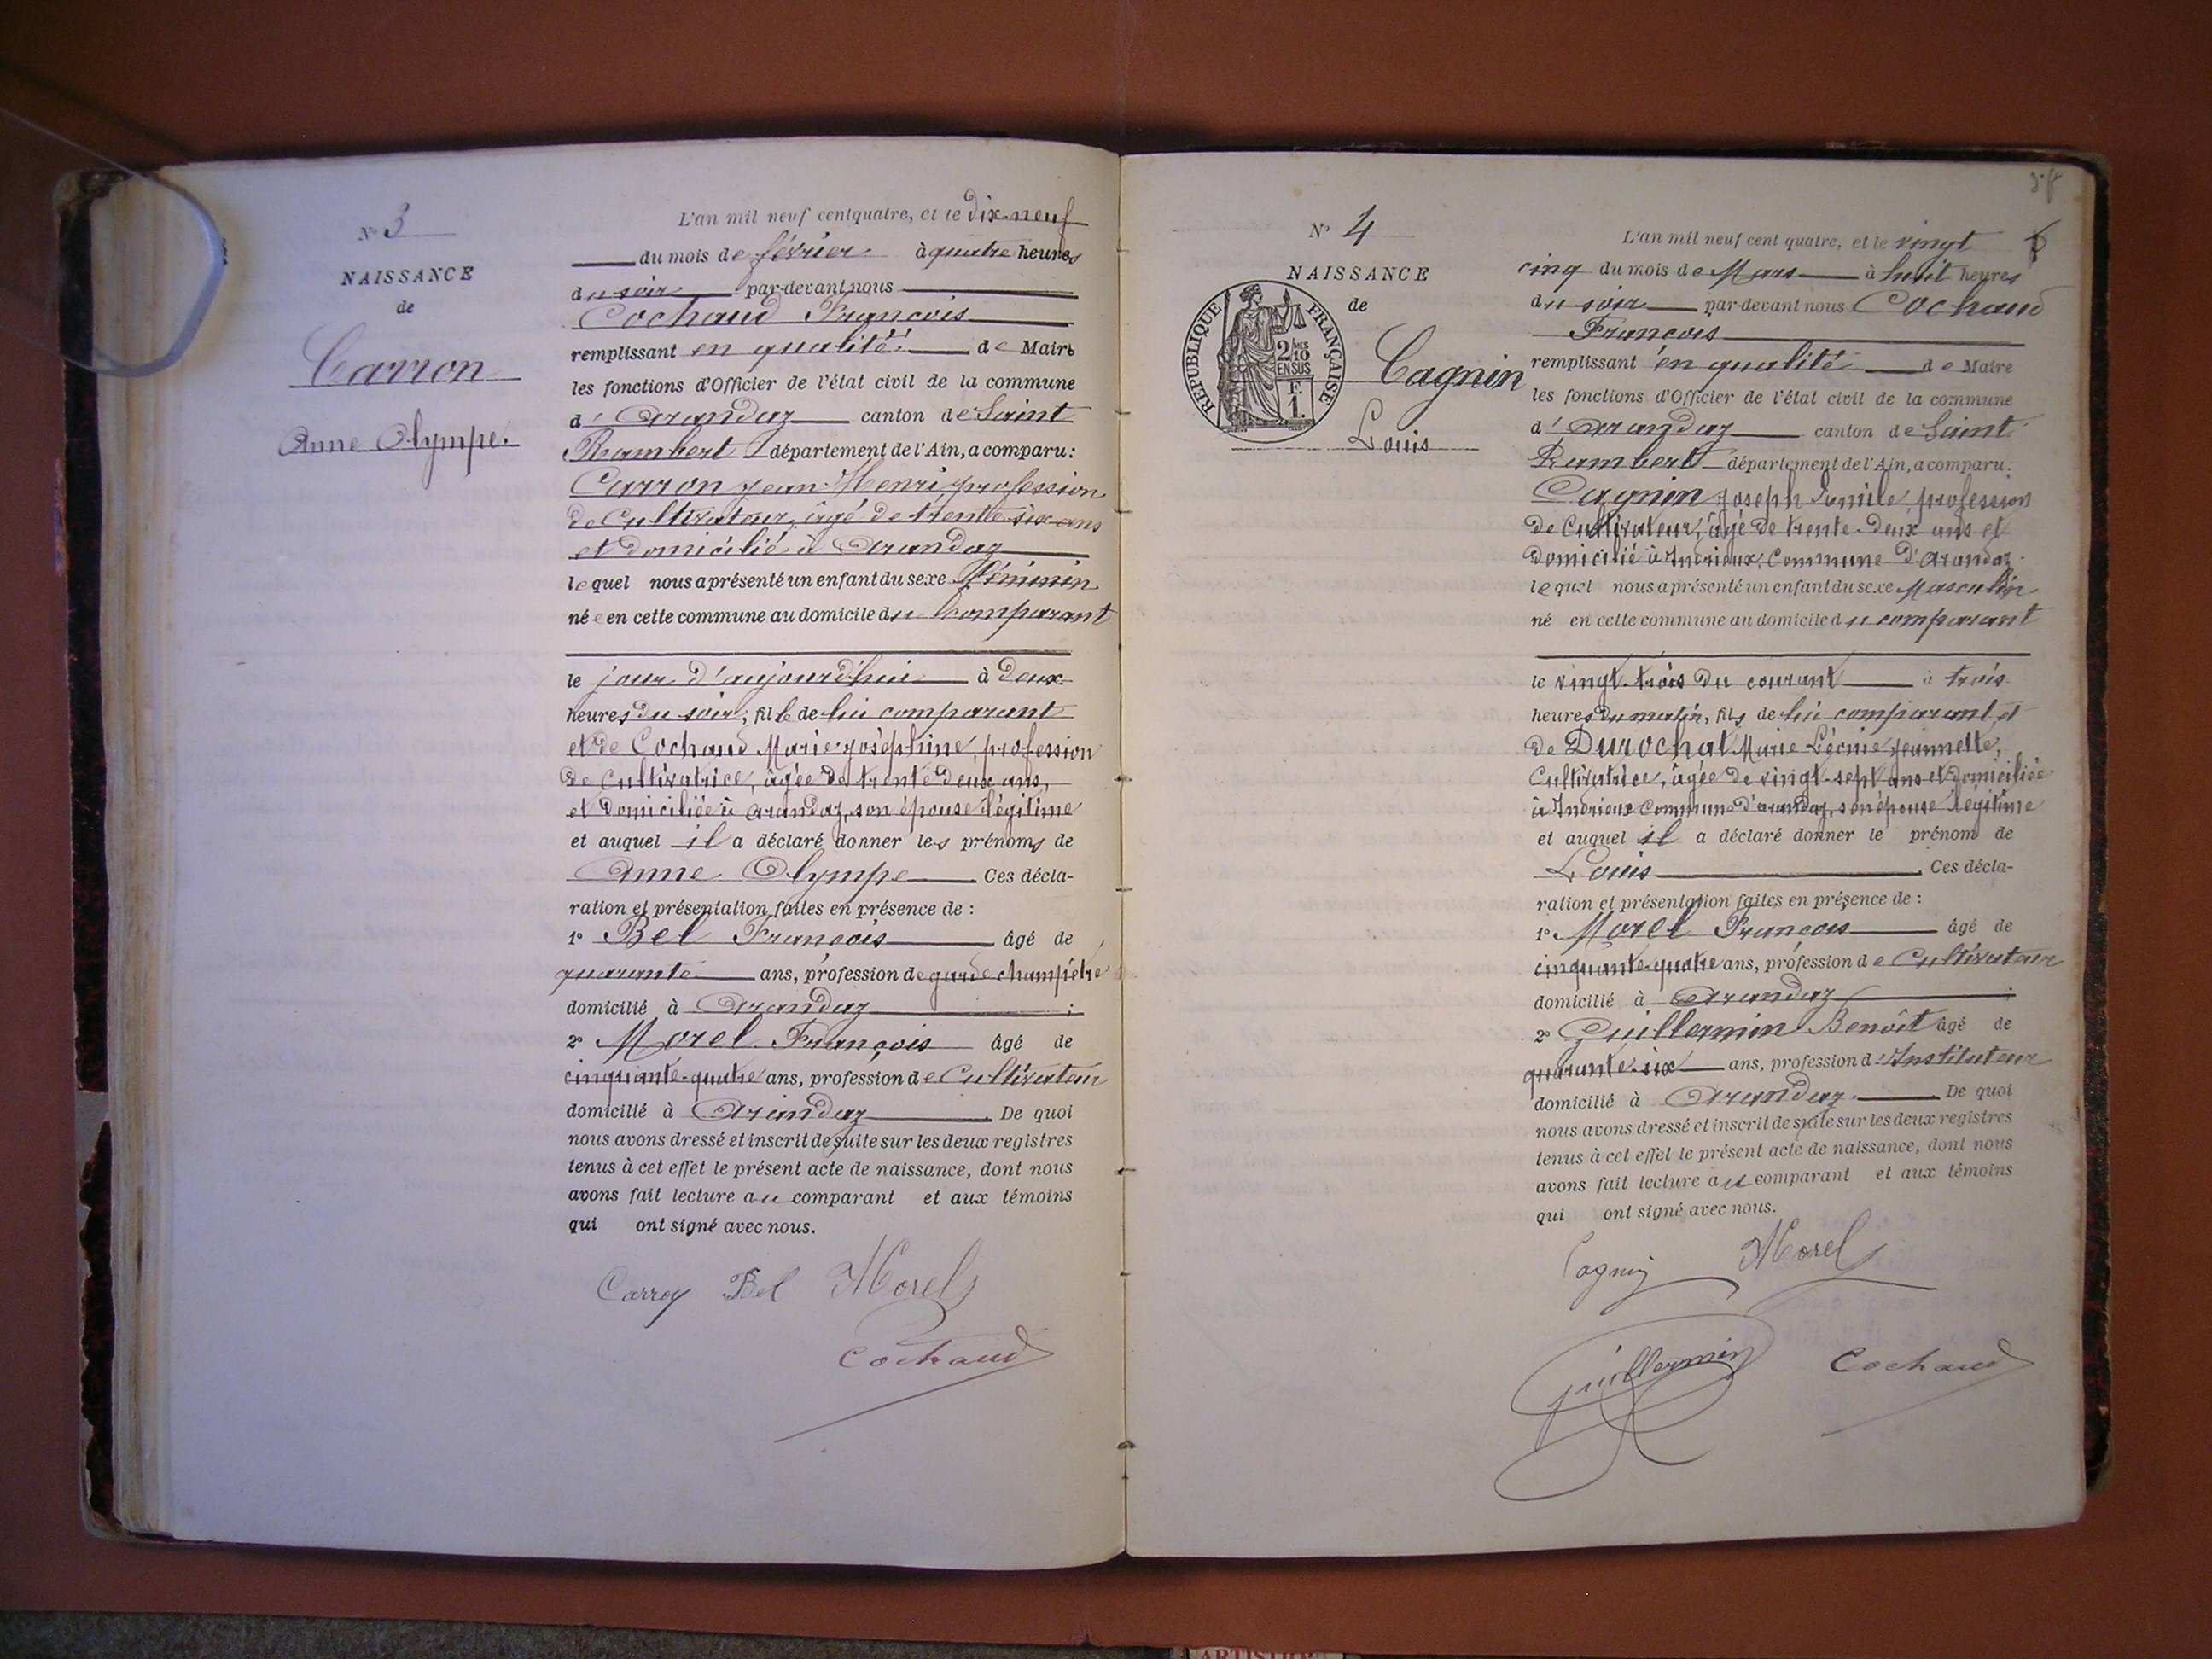 N° 3
NAISSANCE
de
Carron
Anne Olympe.
L'an mil neuf cent quatre, et le dix-neuf
du mois de février à quatre heures
du soir par-devant nous
Cochaud François
remplissant en qualité de Maire
les fonctions d'Officier de l'état civil de la commune
d'Arandaz canton de Saint
Rambert département de l'Ain, a comparu:
Carron Jean Henri profession
de Cultivateur, âgé de trente six ans
et domicilié à Arandaz
lequel nous a présenté un enfant du sexe féminin
née en cette commune au domicile du comparant
le jour d'aujourd'hui à deux
heures du soir, fille de lui comparant
et de Cochaud Marie Joséphine, profession
de Cultivatrice, âgée de trente deux ans,
et domiciliée à Arandaz, son épouse légitime
et auquel il a déclaré donner les prénoms de
Anne Olympe Ces décla-
ration et présentation faites en présence de :
1° Bel François âgé de
quarante ans, profession de garde champêtre
domicilié à Arandaz ;
2° Morel François âgé de
cinquante-quatre ans, profession de Cultivateur
domicilié à Arandaz. De quoi
nous avons dressé et inscrit de suite sur les deux registres
tenus à cet effet le présent acte de naissance, dont nous
avons fait lecture au comparant et aux témoins
qui ont signé avec nous.
Carron Bel Morel
Cochaud
N° 4
NAISSANCE
de
REPUBLIQUE FRANÇAISE
2/10 EN SUS
F.
1.
Cagnin
Louis
L'an mil neuf cent quatre, et le vingt
cinq du mois de Mars à huit heures
du soir par-devant nous Cochaud
François
remplissant en qualité de Maire
les fonctions d'Officier de l'état civil de la commune
d'Arandaz canton de Saint
Rambert département de l'Ain, a comparu:
Cagnin Joseph Emile, profession
de Cultivateur, âgé de trente-deux ans et
domicilié à Indrieux, Commune d'Arandaz
lequel nous a présenté un enfant du sexe Masculin
né en cette commune au domicile du comparant
le vingt-trois du courant à trois
heures du matin, fils de lui comparant et
de Durochat Marie Jeannette,
Cultivatrice, âgée de vingt-sept ans et domiciliée
à Indrieux Commune d'Arandaz, son épouse légitime
et auquel il a déclaré donner le prénom de
Louis. Ces décla-
ration et présentation faites en présence de :
1° Morel François âgé de
cinquante-quatre ans, profession de Cultivateur
domicilié à Arandaz ;
2° Guillermin Benoît âgé de
quarante-six ans, profession d'Instituteur
domicilié à Arandaz. De quoi
nous avons dressé et inscrit de suite sur les deux registres
tenus à cet effet le présent acte de naissance, dont nous
avons fait lecture au comparant et aux témoins
qui ont signé avec nous.
Cagnin Morel
Guillermin Cochaud